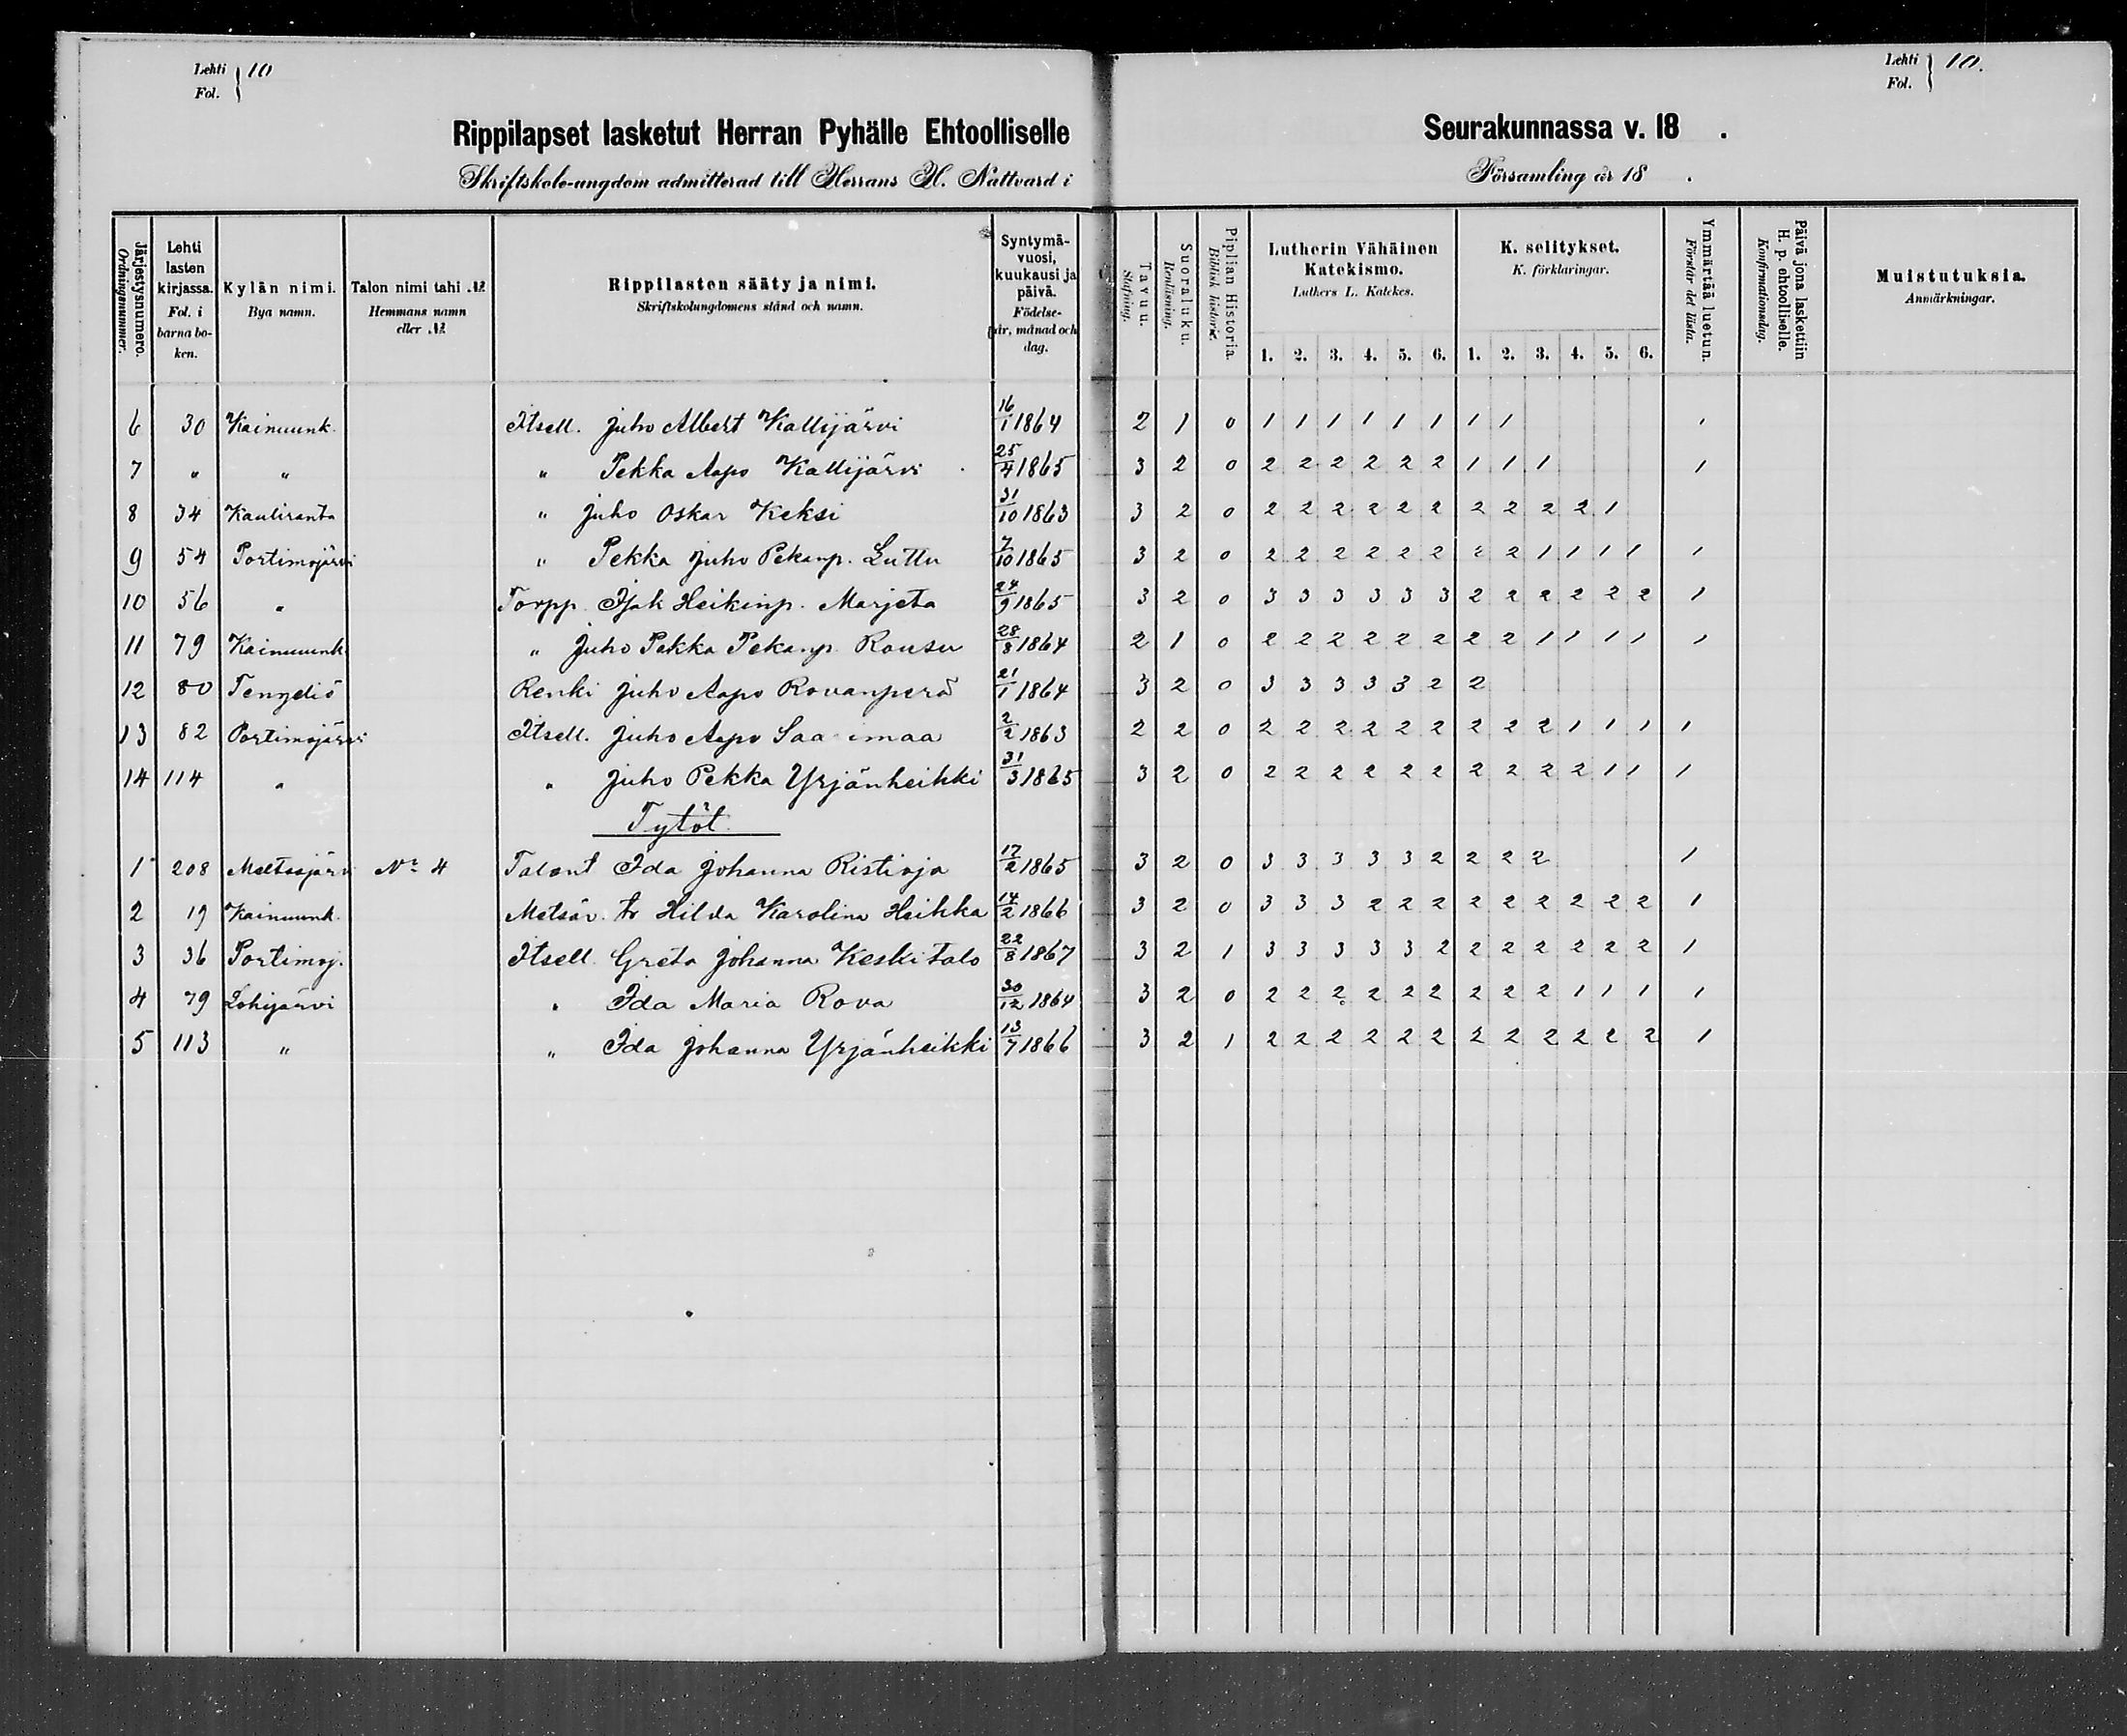 Lehti Fol. } 10
Rippilapset lasketut Herran Pyhälle Ehtoolliselle
Skriftskole-ungdom admitterad till Herrans H. Nattvard i
Järjestysnumero. Ordningsnummer.
Lehti lasten kirjassa. Fol. i barna bo-ken.
Kylän nimi. Bya namn.
Talon nimi tahi № Hemmans namn eller №
Rippilasten sääty ja nimi. Skriftskolungdomens stånd och namn.
Syntymä-vuosi, kuukausi ja päivä. Födelse-år, månad och dag.
6 30 Kainuunk. Itsell. Juho Albert Kallijärvi 16/1 1864
7 " " " Pekka Aapo Kallijärvi 25/4 1865
8 34 Kauliranta " Juho Oskar Keksi 31/10 1863
9 54 Portimojärvi " Pekka Juho Pekanp. Luttu 7/10 1865
10 56 " Torpp. Isak Heikinp. Marjeta 24/9 1865
11 79 Kainuunk " Juho Pekka Pekanp. Rousu 28/8 1864
12 80 Tengeliö Renki Juho Aapo Rovanperä 21/1 1864
13 82 Portimojärvi Itsell. Juho Aapo Saa imaa 2/2 1863
14 114 " " Juho Pekka Yrjänheikki 31/3 1865
Tytöt.
1 208 Meltosjärvi No 4 Talont Ida Johanna Ristioja 17/2 1865
2 19 Kainuunk. Metsäv. tr Hilda Karolina Heikka 14/2 1866
3 36 Portimoj. Itsell. Greta Johanna Keskitalo 22/8 1867
4 79 Lohijärvi " Ida Maria Rova 30/12 1864
5 113 " " Ida Johanna Yrjänheikki 13/7 1866
Lehti Fol. } 10.
Seurakunnassa v. 18 .
Församling år 18 .
Tavuu. Stafning.
Suoraluku. Renläsning.
Piplian Historia. Biblisk historie.
Lutherin Vähäinen Katekismo. Luthers L. Katekes.
1. 2. 3. 4. 5. 6.
K. selitykset. K. förklaringar.
1. 2. 3. 4. 5. 6.
Ymmärtää luetun. Förstår det lästa.
Päivä jona laskettiin H. p. ehtoolliselle. Konfirmationsdag.
Muistutuksia. Anmärkningar.
2 1 0 1 1 1 1 1 1 1 1 1
3 2 0 2 2 2 2 2 2 1 1 1 1
3 2 0 2 2 2 2 2 2 2 2 2 2 1
3 2 0 2 2 2 2 2 2 2 2 1 1 1 1 1
3 2 0 3 3 3 3 3 3 2 2 2 2 2 2 1
2 1 0 2 2 2 2 2 2 2 2 1 1 1 1 1
3 2 0 3 3 3 3 3 2 2
2 2 0 2 2 2 2 2 2 2 2 2 1 1 1 1
3 2 0 2 2 2 2 2 2 2 2 2 2 1 1 1
3 2 0 3 3 3 3 3 2 2 2 2 1
3 2 0 3 3 3 2 2 2 2 2 2 2 2 2 1
3 2 1 3 3 3 3 3 2 2 2 2 2 2 2 1
3 2 0 2 2 2 2 2 2 2 2 2 1 1 1 1
3 2 1 2 2 2 2 2 2 2 2 2 2 2 2 1